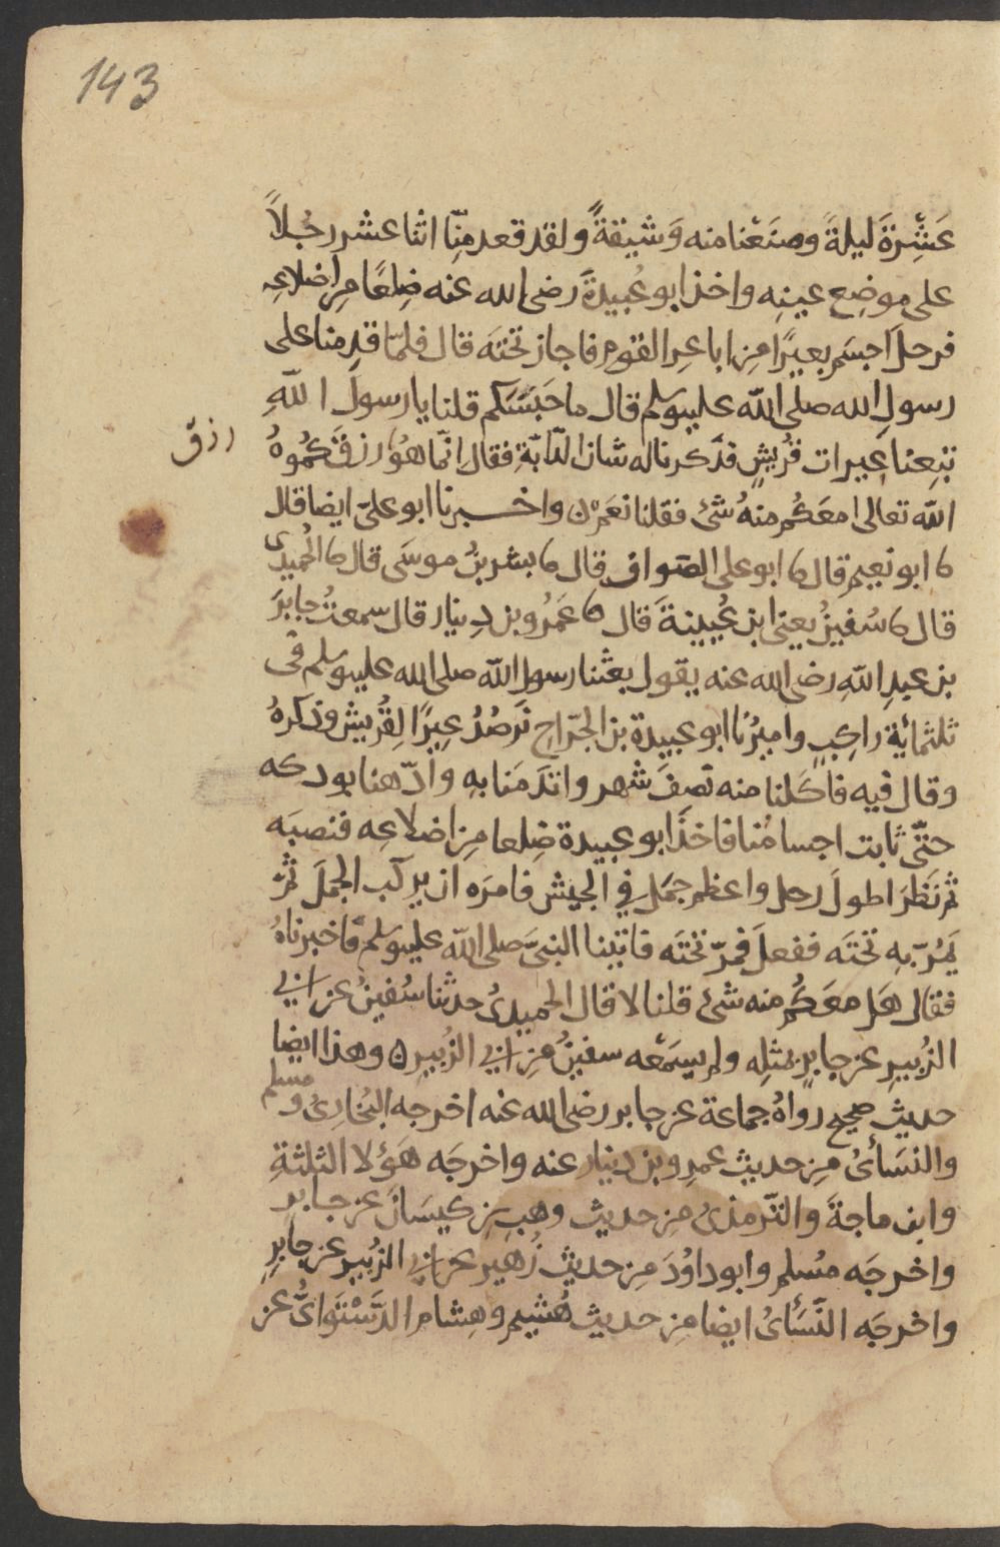 143
عَشْرَةَ ليلةً وصنَعْنا منه وَشيقةً ولقد قعد مِنّا اثنا عشر رجُلاً
على موضِع عينِه واخذ ابو عُبيدةَ رضى الله عنه ضِلعًا مِن اضلاعِه
فرحلَ اجسَم بعيرًا مِن اباعِرِ القومِ فاجاز تحتَه قال فلمّا قدِمنا على
رسولِ الله صلى الله عليه وسلم قال ما حَبَسَكم قلنا يا رسولَ اللهِ
نتبِعنا عِيرات قُريشٍ فذكرنا له شانَ الدّابّةِ فقال انّما هوُ رزقٌ رزقَكُموهُ
الله تعالى امعَكُم منهُ شئ فقلنا نعَم ه واخبرنا ابو علىّ ايضا قال
ثنا ابو نعيم قال ثنا ابو على الصواف قال ثنا بشر بنُ موسَى قال ثنا الحُميدى
قال ثنا سُفينُ يعنى ابن عُيينةَ قال ثنا عَمْرُو بن دِينار قال سمعتُ جابرَ
بن عبدِ اللهِ رضى الله عنه يقول بعثنا رسول الله صلى الله عليه وسلم فى
ثلثمائِة راكِبٍ واميرُنا ابو عبيدة بن الجرّاحِ نَرصُدُ عِيرًا لِقُريش وذكرهُ
وقال فيه فاكَلنا منه نصفَ شهر واتدَمنا بهِ وادّهنا بودكه
حتّى ثابت اجسامُنا فاخذَ ابو عبيدة ضِلعا مِن اضلاعِه فنصبَه
ثم نَظَرَ اطولَ رحل واعظم جمَل في الجيش فامرَه ان يركب الجملَ ثمّ
يَمُرّ بهِ تحتَه ففعلَ فمرّ تحتَه فاتينا النبىَّ صلى الله عليه وسلم فاخبرناهُ
فقال هَل معَكُم منه شئ قلنا لا قال الحميدىُ حدثنا سُفينُ عن ابي
الزُبيرِ عن جابرٍ بمثلِه ولم يسمَعْه سفينُ مِن ابي الزُبيرِ ه وهذا ايضا
حديث صحيح رواهُ جماعة عن جابر رضى الله عنه اخرجه البُخارىُ ومسلم
والنسَأىُ مِن حديثِ عمرِو بن دينار عنه واخرجَه هؤلا الثلثةِ
وابن ماجةَ والتّرمذىُ مِن حديث وهبِ بن كيسَانَ عن جابر
واخرجَه مُسلم وابو داوُدَ مِن حديثِ زُهير عن ابي الزُبير عن جابِرِ
واخرجَه النَّسَأىُ ايضا مِن حديث هُشيمٍ وهِشام الدَّسْتَوائىُّ عن
رزق